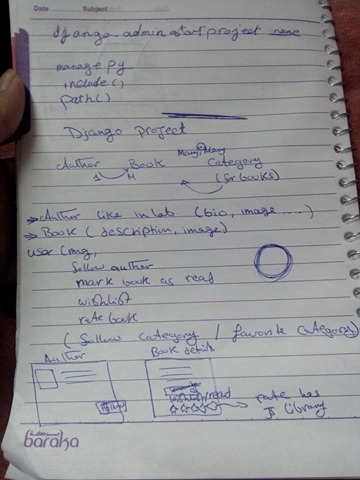 Date
Subject
django-admin startproject name
manage.py
include()
path()
Django project
Many, Many
Author Book Category
1 M (for books)
→ Author like in lab (bio, image ....)
→ Book (description, image)
user (img,
follow author
mark book as read
wishlist
rate book
(follow category / favorite category)
Author Book details
wishlist/read
rate has
follow
JS library
baraka